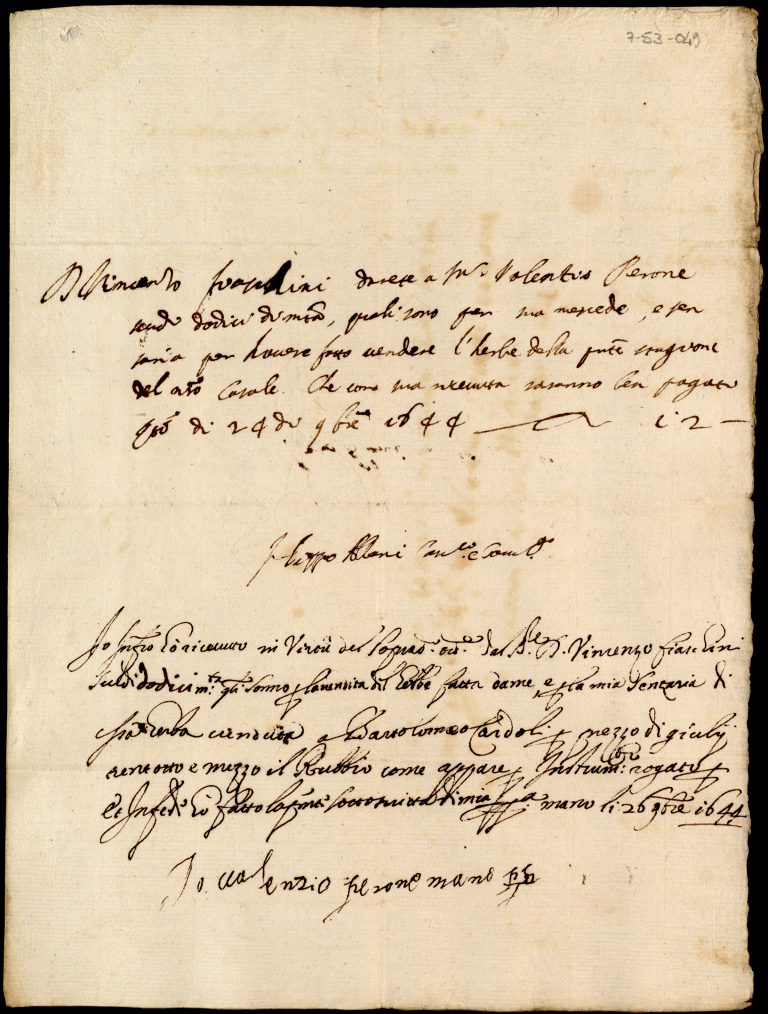 7-53-049
Vincenzo fraschini darete a Mr. Valentio Perone
scudi dodici di mta, quali sono per sua mercede, e sen
saria per havere fatto vendere l'herbe della pnte stagione
del nro Casale. Che con sua ricevuta saranno ben pagati
Qto di 24 di 9bre 1644 12
Filippo
Io Infro ho ricevuto in Virtù del sopradto Dal Sr D. Vincenzo
scudi dodici mta qli sonno p la vendita del herbe fatta dame e p la mia senzaria di
erba venduta a Bartolomeo Cardoli p prezzo di giulij
trentotto e mezzo il Rubbio come appare p Instrumto rogato p
et Infede ho fatto la pnte sottoscritta di mia ppa mano li 26 9bre 1644
Io valenzio perone mano pp